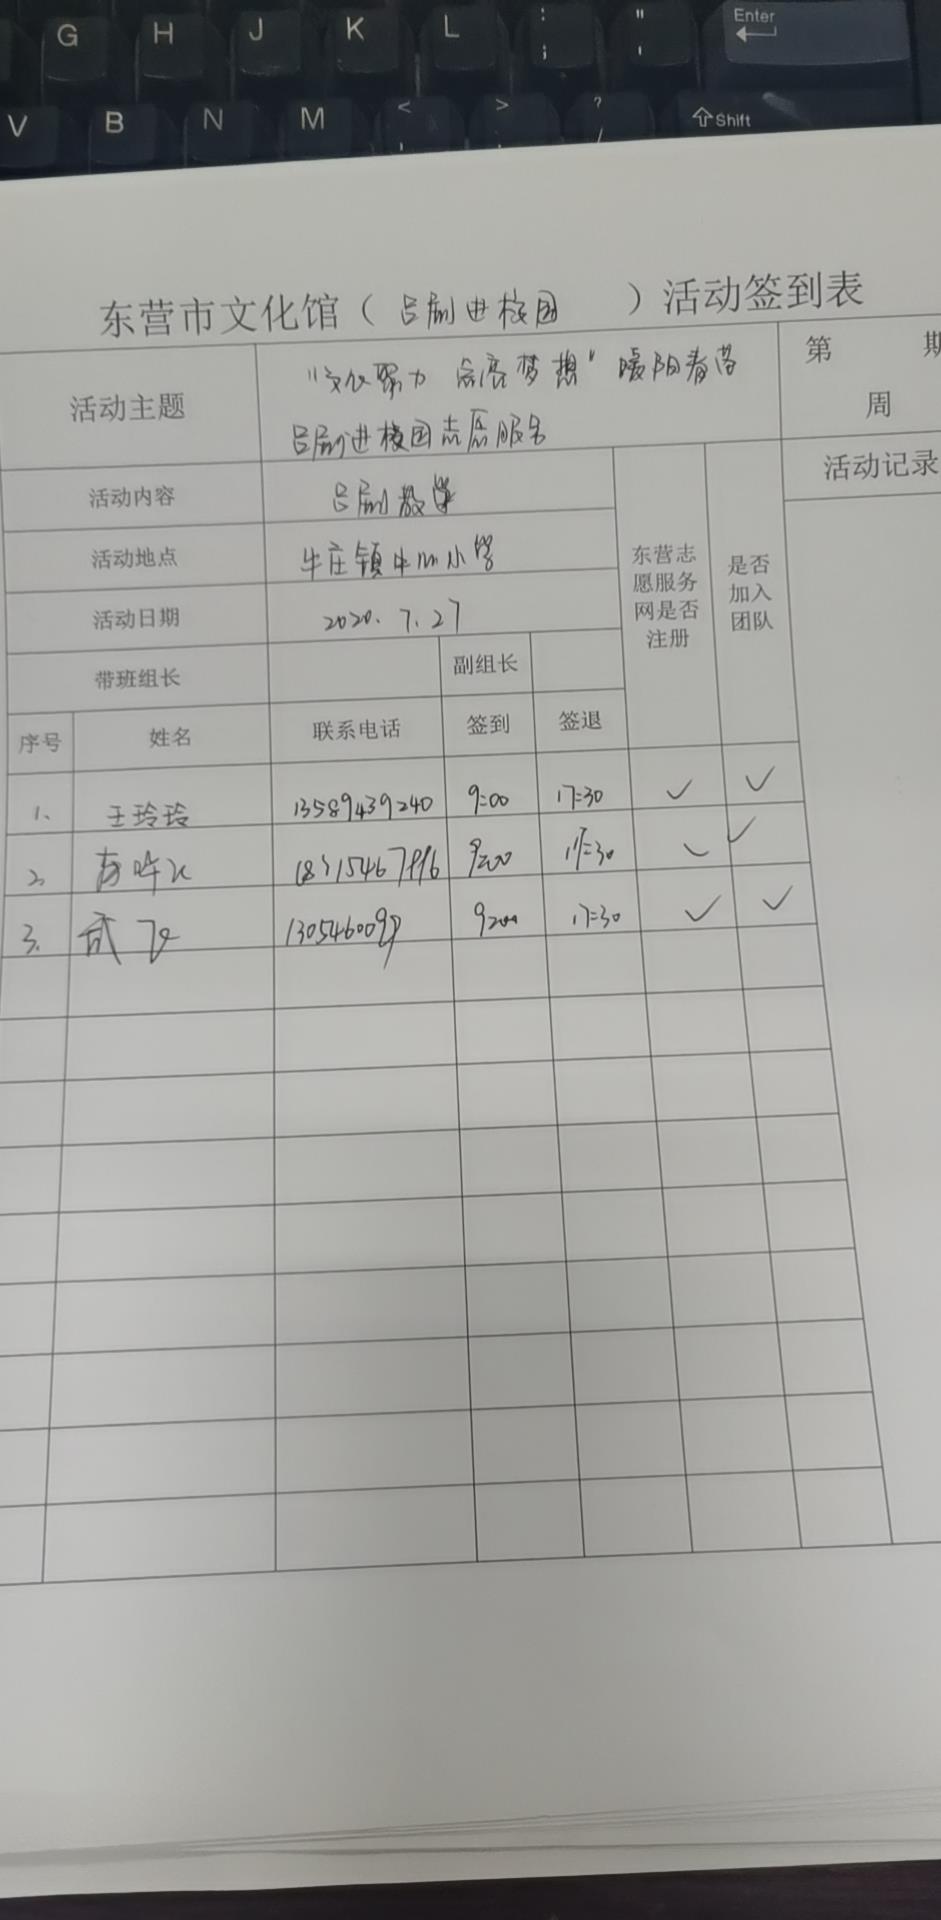 G H J K L : ; " ' Enter
V B N M < , > ? / Shift
东营市文化馆（吕剧进校园）活动签到表
活动主题
"文化聚力 点亮梦想"暖阳春蕾
吕剧进校园志愿服务
第 期
周
活动内容 吕剧教学
活动记录
活动地点 牛庄镇中心小学
活动日期 2020.7.27
东营志
愿服务
网是否
注册
是否
加入
团队
带班组长 副组长
序号 姓名 联系电话 签到 签退
1、 王玲玲 13589439240 9:00 17:30 ✓ ✓
2、 9:00 17:30 ✓ ✓
3. 9:00 17:30 ✓ ✓